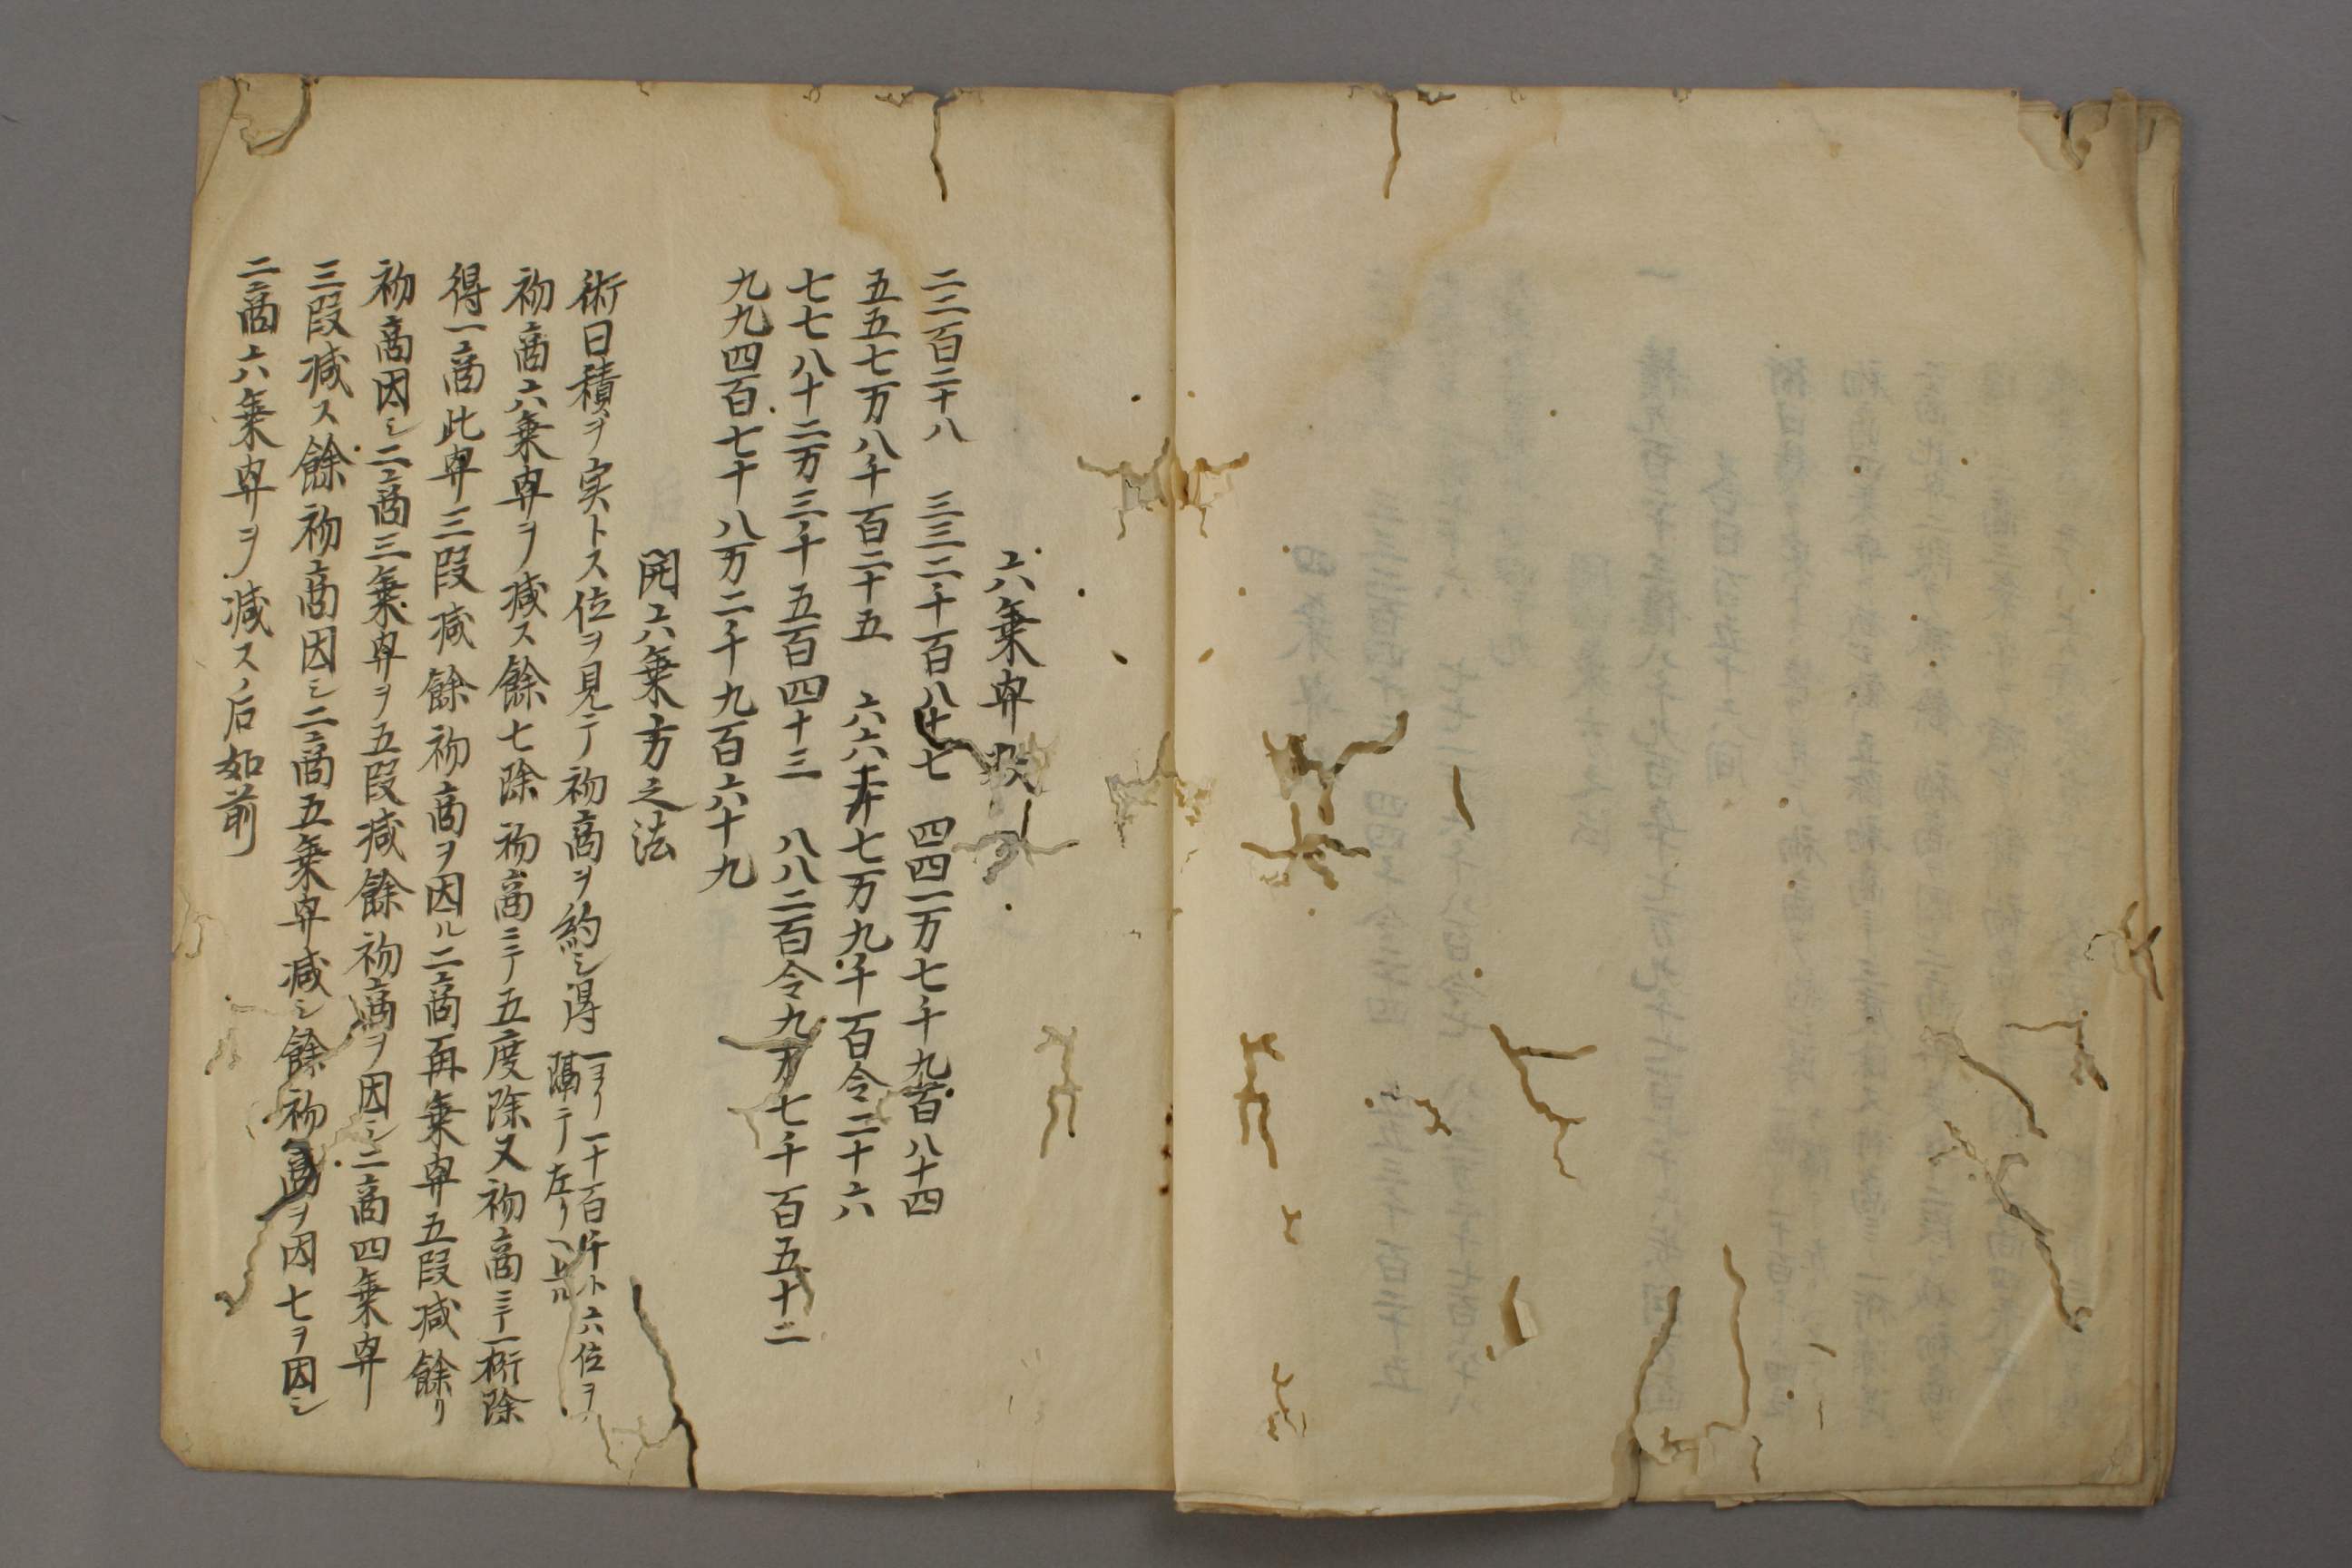 六乗冪段
二二百二十八　三三二千百八十七　四四一万七千九百八十四
五五七万八千百二十五　六六二十七万九千百令二十六
七七八十二万三千五百四十三　八八二百令九万七千百五十二
九九四百七十八万二千九百六十九
開六乗方之法
術曰積ヲ実トス位ヲ見テ初商ヲ約シ得 一ヨリ一十百千ト六位ヲ隔テ左リ
初商六乗冪ヲ減ス餘七除初商ニテ五度除又初商ニテ一桁除
得一商此冪三段減餘初商ヲ因ル二商再乗冪五段減餘リ
初商因シ二商三乗冪ヲ五段減餘初商ヲ因シ二商四乗冪
三段減ス餘初商因シ二商五乗冪減シ餘初商ヲ因七ヲ因シ
二商六乗冪ヲ減ス后如前